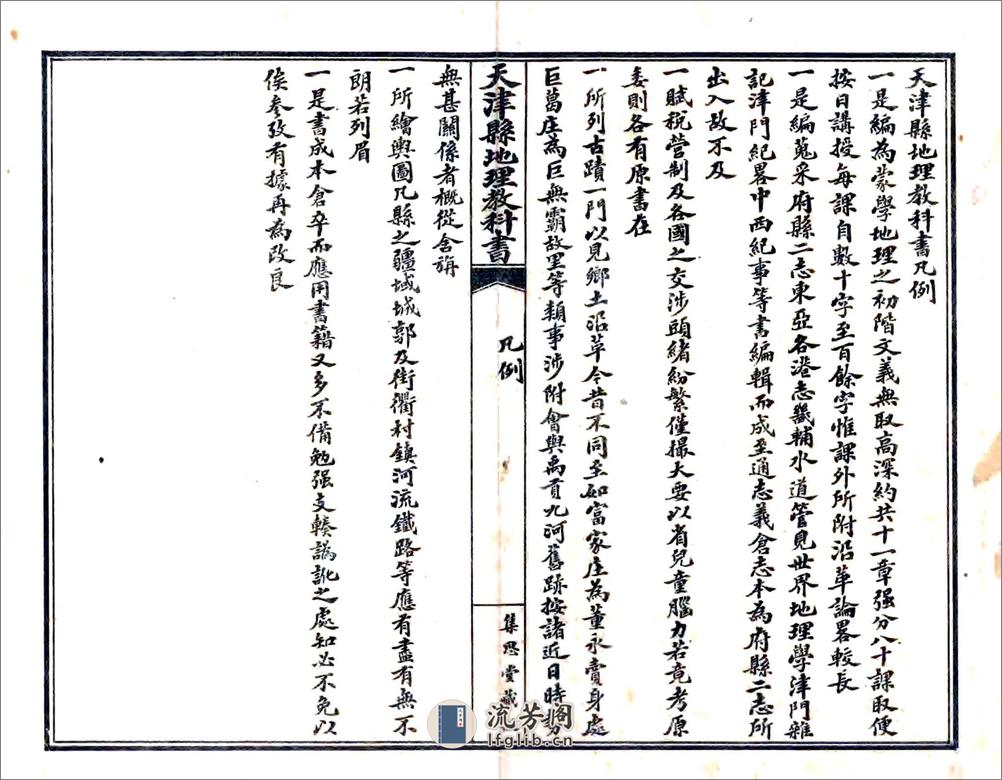 天津縣地理教科書凡例
一是編為蒙學地理之初階文義無取高深約共十一章强分八十課取便
按日講授每課自數十字至百餘字惟課外所附沿革論畧較長
一是編蒐采府縣二志東亞各港志畿輔水道管見世界地理學津門雜
記津門紀畧中西紀事等書編輯而成至通志義倉志本為府縣二志所
出入故不及
一賦稅營制及各國之交涉頭緒紛繁僅撮大要以省兒童腦力若竟考原
委則各有原書在
一所列古蹟一門以見鄉土沿革今昔不同至如富家庄為董永賣身處
巨葛庄為巨無霸故里等類事涉附會與禹貢九河舊跡按諸近日時勢
天津縣地理教科書
凡例
集思堂藏
無甚關係者概從舍旃
一所繪輿圖凡縣之疆域城郭及街衢村鎮河流鐵路等應有盡有無不
朗若列眉
一是書成本倉卒而應用書籍又多不備勉强支輳譌訛之處知必不免以
俟參攷有據再為改良
流芳阁
lfglib.cn